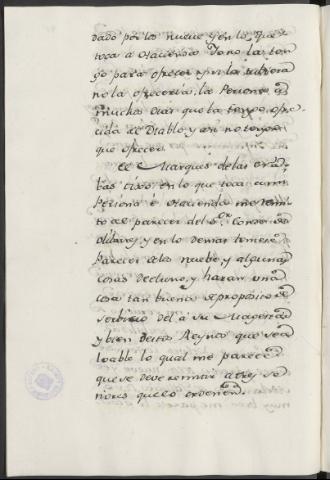 dado por los nueve y en lo que
toca a Hacienda Yo no la ten
go para ofrecer y si la tubiera
no la ofreceria, la Persona
muchos dias que la tengo ofre
cida al Diablo y asi no tengo
que ofrecer
El Marques delas
dixo, en lo que toca a mi
Persona è Hacienda me remi
to al parecer del Sor. Conde
Olibares, y en lo demas tomese
Parecer alos nuebe, y algunas
cosas de el uno, y haran una
cosa tan buena à proposito
Serbicio del à su Magestad
y bien destos Reynos que sea
loable lo qual me parece
que se debe remitir a tres se
ñores que lo ordenen